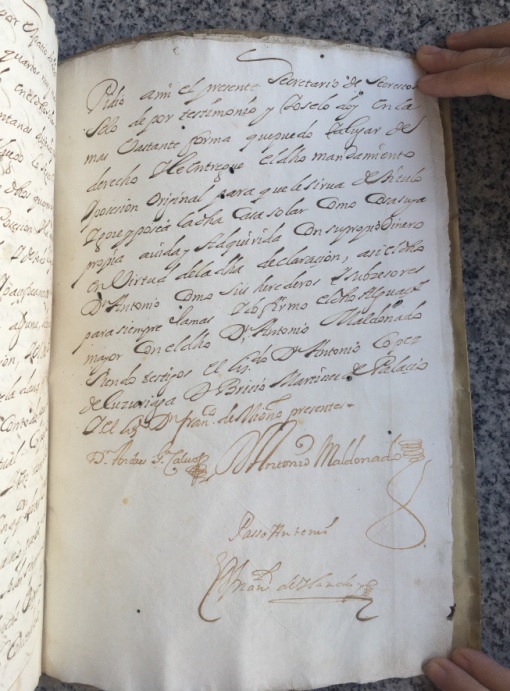 Pidio a mi el presente Secretario de Secrestos
se lo de por testimonio y Yo se lo doy en la
mas bastante forma que puedo
derecho y le entregue el dho mandamiento
Posesion Original para que le sirva de titulo
y goce y posea la dha Casa solar como Cosa suya
propia avida y adquirida con su propio dinero
en Virtud de la dha declaracion, asi el dho
Dn Antonio Como sus herederos y subsesores
para siempre Jamas y lo firmo el dho Alguazl
mayor con el dho Dn Antonio Maldonado
siendo testigos el Lizdo Dn Antonio Lopez
de Dn Bricio Martinez de Palacio
y el Lizdo Dn Franco de presentes-
Dn Antonio Maldonado
Passo Ante mi
Franco de